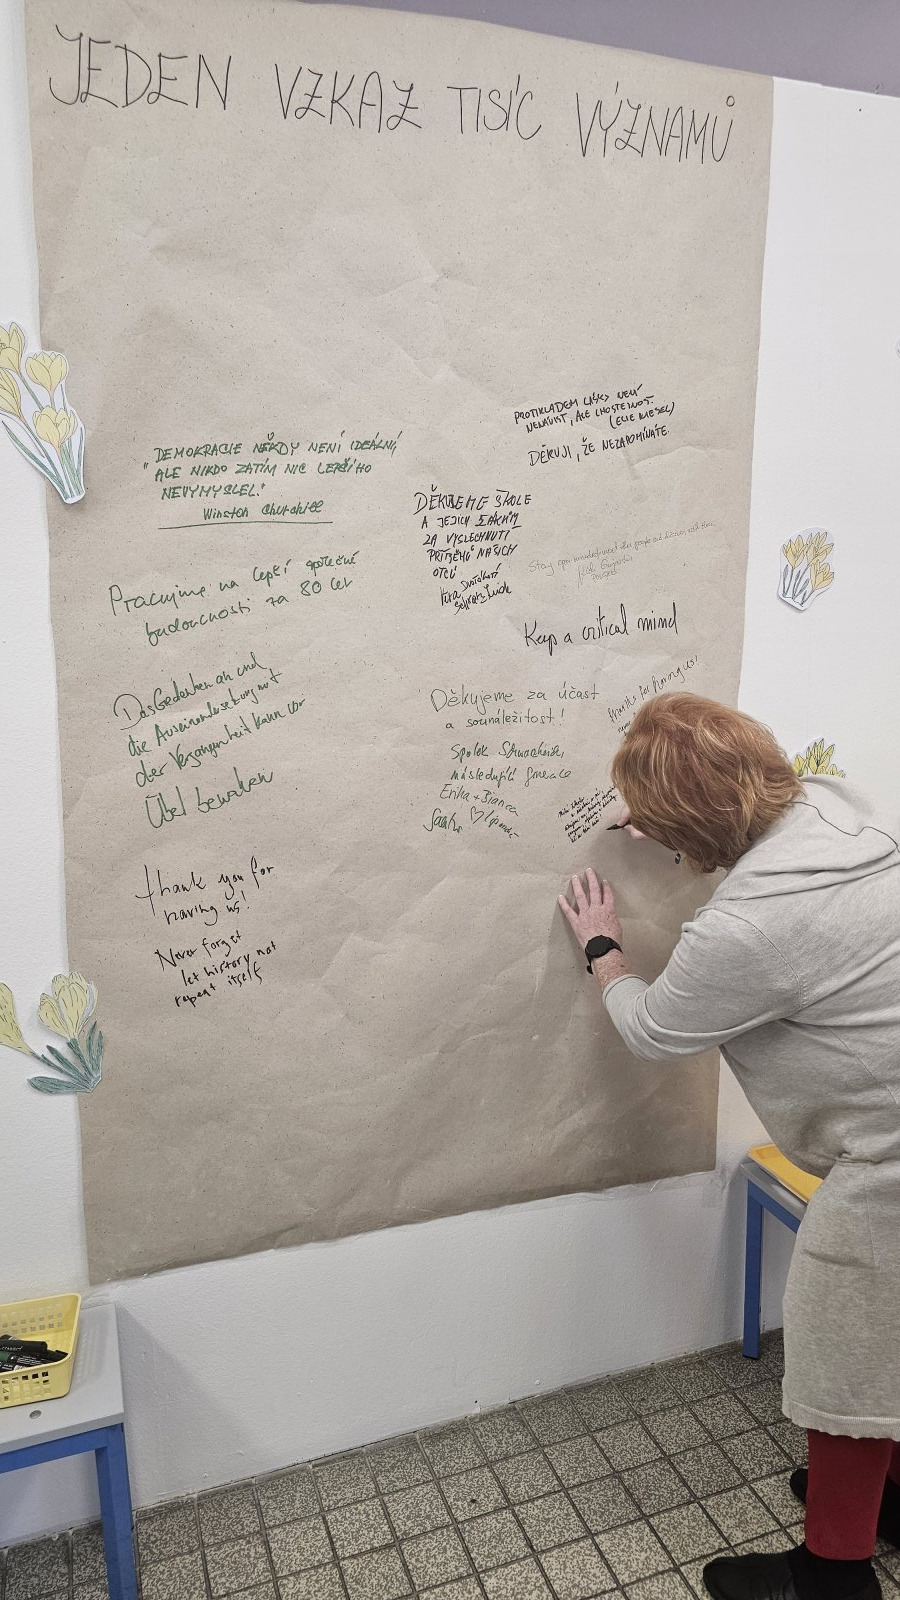 JEDEN VZKAZ TISÍC VÝZNAMŮ
"DEMOKRACIE NĚKDY NENÍ IDEÁLNÍ,
ALE NIKDO ZATÍM NIC LEPŠÍHO
NEVYMYSLEL."
Winston Churchill
Pracujme na lepší společné
budoucnosti za 80 let
Das Gedenken an und
die Auseinandersetzung mit
der Vergangenheit kann vor
Übel bewahren
thank you for
having us!
Never forget
let history not
repeat itself
PROTIKLADEM LÁSKY NENÍ
NENÁVIST, ALE LHOSTEJNOST.
(ELIE WIESEL)
DĚKUJI, ŽE NEZAPOMÍNÁTE.
DĚKUJEME ŠKOLE
A JEJICH ŽÁKŮM
ZA VYSLECHNUTÍ
PŘÍBĚHŮ NAŠICH
OTCŮ
Stay open minded
Keep a critical mind
Thanks for having us!
Děkujeme za účast
a sounáležitost!
Spolek
následující generace
Erika + Bianca